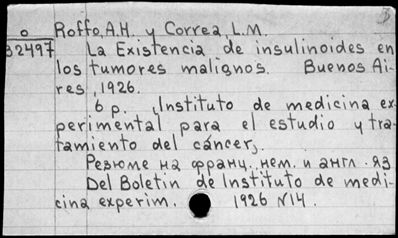 3
o Roffo, A.H. y Correa, L.M.
32497 La Existencia de insulinoides en
los tumores malignos. Buenos Ai-
res, 1926.
6 p. (Instituto de medicina ex-
perimental para el estudio y tra-
tamiento del cáncer).
Резюме на франц. нем. и англ. яз
Del Boletin de Instituto de medi-
cina experim. 1926 N14.